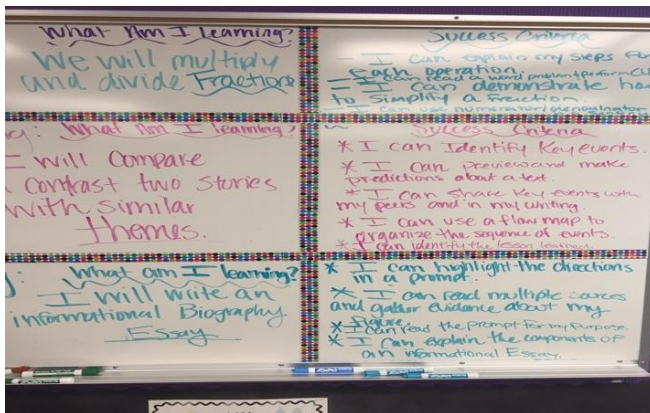 What Am I learning?
We will multiply
and divide Fractions
Success Criteria
- I can explain my steps For
each operation.
- I can read a word problem & perform
- I can demonstrate how
to simplify a fraction
- I can use numerator/denominator
What Am I learning?
I will Compare
contrast two stories
with similar
themes.
Success Criteria
* I can Identify Key events.
* I can preview and make
predictions about a text.
* I can share key events with
my peers and in my writing.
* I can use a flow map to
organize the sequence of events.
* I can identify the lesson learned
What am I learning?
I will write an
informational Biography
Essay
* I can highlight the directions
in a prompt.
* I can read multiple sources
and gather evidence about my
figure.
* I can read the prompt for my purpose.
* I can explain the components of
an informational Essay.